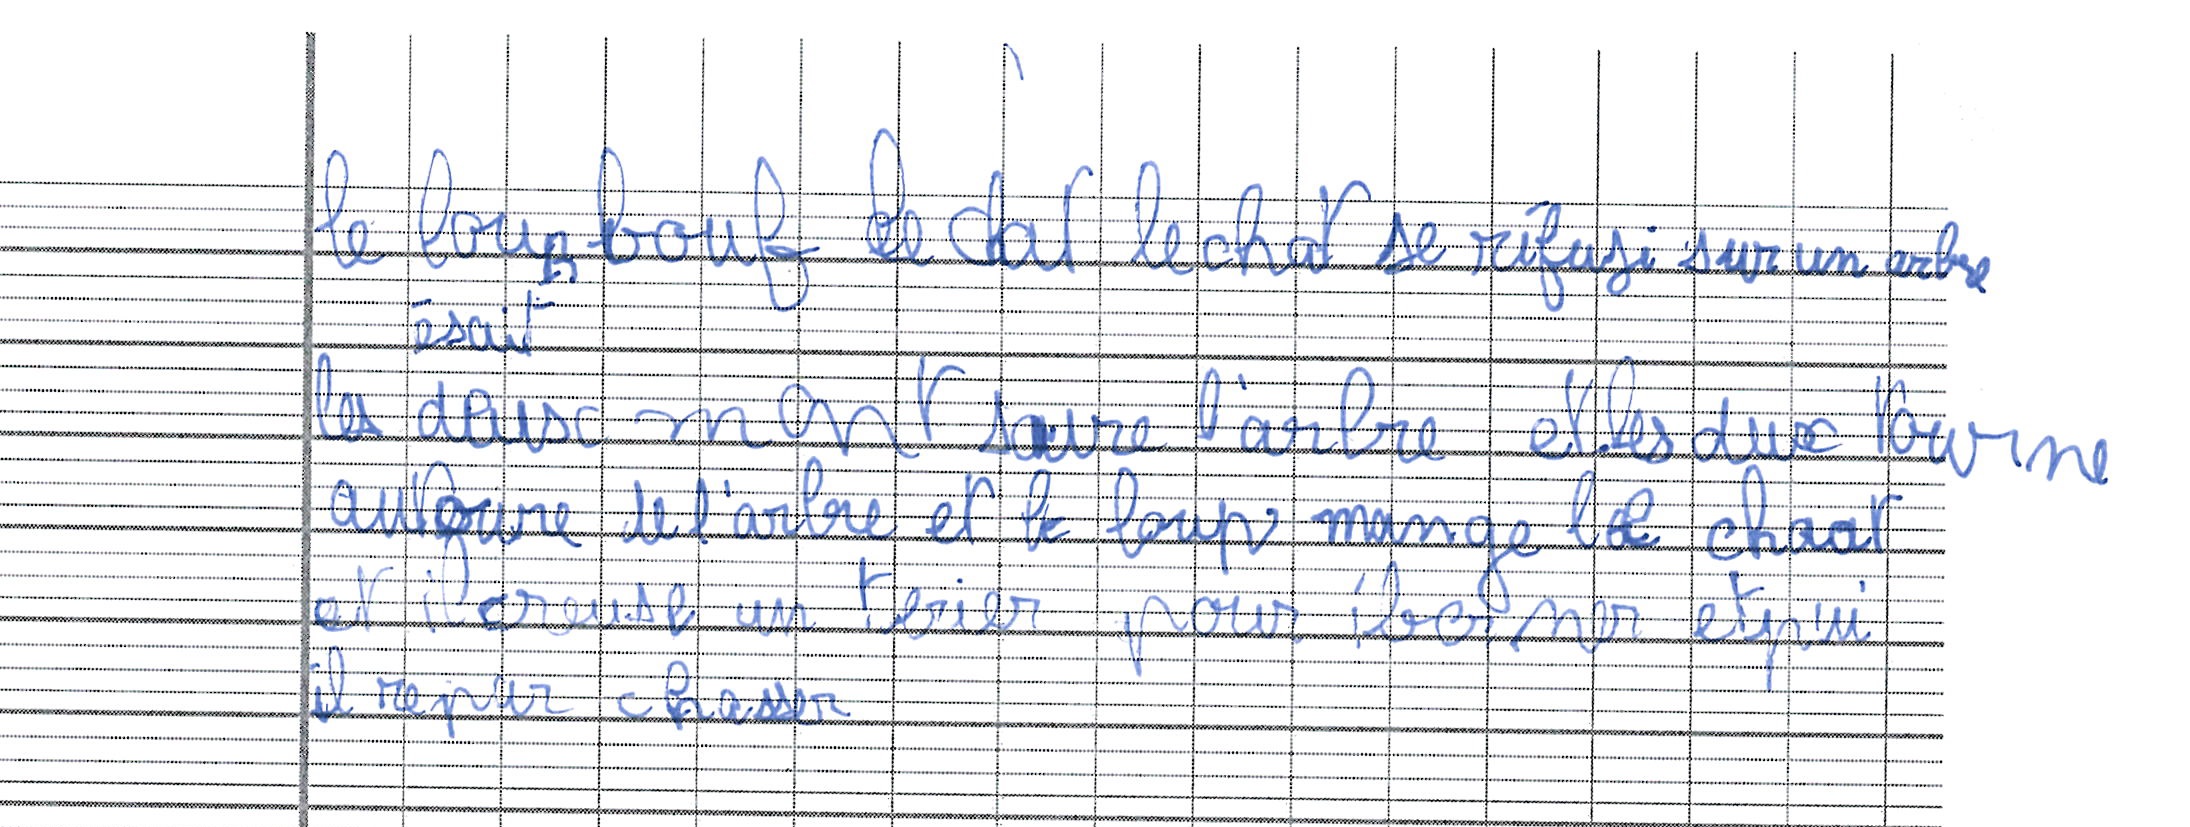 le loup bouf le chat le chat se réfusi sur un arbre
ésait
les deusc mont saure l'arbre et les dusc tourne
autoure de l'arbre et le loup mange le chaat
et il creuse un terier pour iberner et pui
il repur chasser